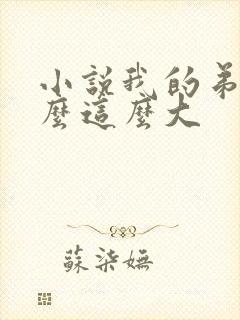 小說我的弟
麼這麼大
蘇柒嫵